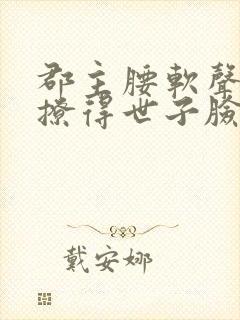 郡主腰軟聲
撩得世子臉
戴安娜